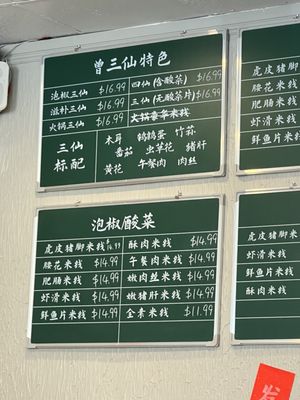 曾三仙特色
泡椒三仙 $16.99 四仙(含酸菜) $16.99
滋补三仙 $16.99 三仙(无酸菜片) $16.99
火锅三仙 $16.99
三仙标配
木耳 鹌鹑蛋 竹荪
番茄 虫草花 猪肝
黄花 午餐肉 肉丝
泡椒酸菜
虎皮猪脚米线 $14.99 酥肉米线 $14.99
腰花米线 $14.99 午餐肉米线 $14.99
肥肠米线 $14.99 嫩肉丝米线 $14.99
虾滑米线 $14.99 嫩猪肝米线 $14.99
鲜鱼片米线 $14.99 全素米线 $11.99
虎皮猪脚
腰花米线
肥肠米线
虾滑米线
鲜鱼片米
虎皮猪脚
肥肠米线
虾滑米线
鲜鱼片米线
酥肉米线